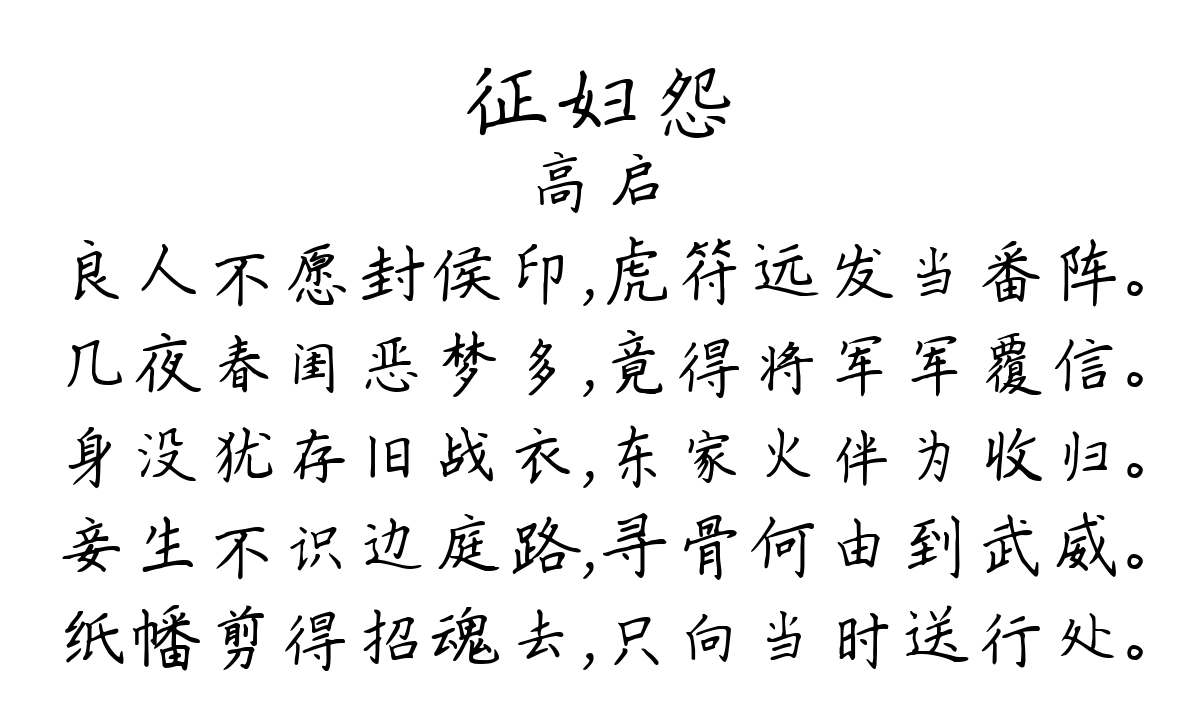 征妇怨
高启
良人不愿封侯印,虎符远发当番阵。
几夜春闺恶梦多,竟得将军军覆信。
身没犹存旧战衣,东家火伴为收归。
妾生不识边庭路,寻骨何由到武威。
纸幡剪得招魂去,只向当时送行处。